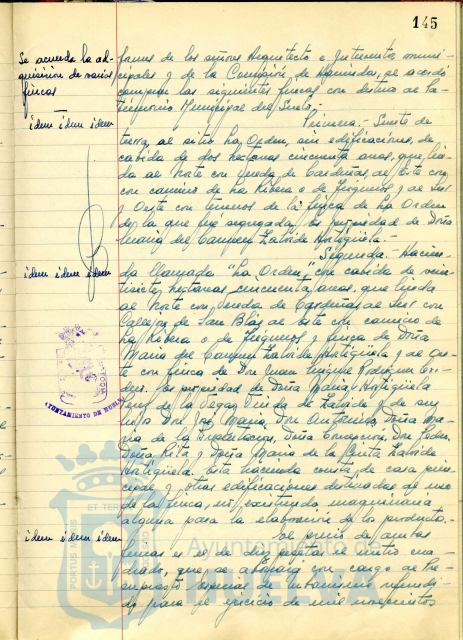 145
Se acuerda la ad-
quisición de varias
fincas
formes de los señores Arquitecto e Interventor muni-
cipales y de la Comisión de Hacienda, se acordó
comprar las siguientes fincas con destino al Pa-
trimonio Municipal del Suelo.-
idem idem idem
Primera.- Suerte de
tierra, al sitio La Orden, sin edificaciones, de
cabida de dos hectáreas cincuenta áreas, que lin-
da al Norte con Vereda de Cardeñas, al Este con
con camino de la Ribera o de y al Sur
y Oeste con terrenos de la finca de La Orden
de la que fué segregada, es propiedad de Doña
María del Carmen Laborde Hortigüela.-
Segunda.- Hacien-
idem idem idem
da llamada "La Orden", con cabida de vein-
tisiete hectáreas cincuenta áreas, que linda
al Norte con Vereda de Cardeñas, al Sur con
Callejón de San Blas, al Este con camino de
la Ribera o de y finca de Doña
María del Carmen Laborde Hortigüela y al Oes-
te con finca de Don Juan Rodríguez
Es propiedad de Doña María Hortigüela
de la Vega, Viuda de Laborde y de sus
hijos Don José María, Don Antonio, Doña Ma-
ría de la Doña Concepción, Don Pedro,
Doña Rita y Doña María de la Cinta Laborde
Hortigüela. Esta hacienda consta de casa prin-
cipal y otras edificaciones destinadas al uso
de la finca, no existiendo maquinaria
alguna para la elaboración de los productos.-
idem idem idem
El precio de ambas
fincas es el de diez pesetas el metro cua-
drado, que se abonará con cargo al Pre-
supuesto especial de Urbanismo
do para el ejercicio de mil novecientos
AYUNTAMIENTO DE HUELVA
Ayuntamiento de
HUELVA